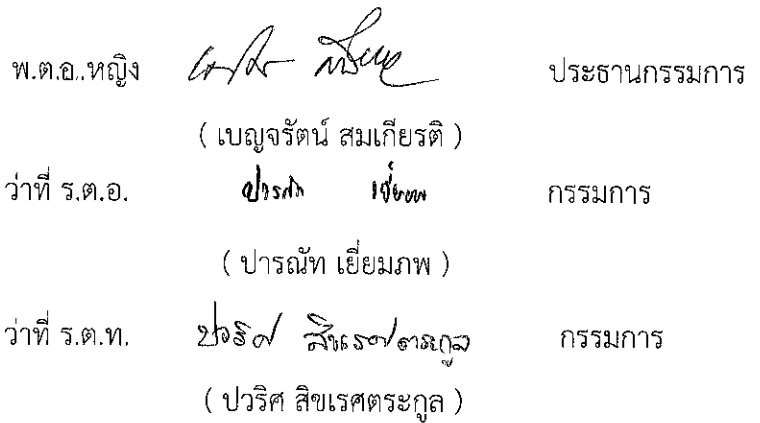 พ.ต.อ..หญิง ประธานกรรมการ
( เบญจรัตน์ สมเกียรติ )
ว่าที่ ร.ต.อ. ปารณัท เยี่ยมภพ กรรมการ
( ปารณัท เยี่ยมภพ )
ว่าที่ ร.ต.ท. ปวริศ สิขเรศตระกูล กรรมการ
( ปวริศ สิขเรศตระกูล )